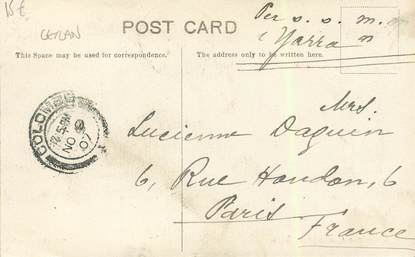 15 €
CEYLAN
POST CARD
Per s. s. m.
"Yarra"
This Space may be used for correspondence.
The address only to be written here.
COLOMBO
NO 9
07
Mrs.
Lucienne Daguin
6, Rue Houdon, 6
Paris
France